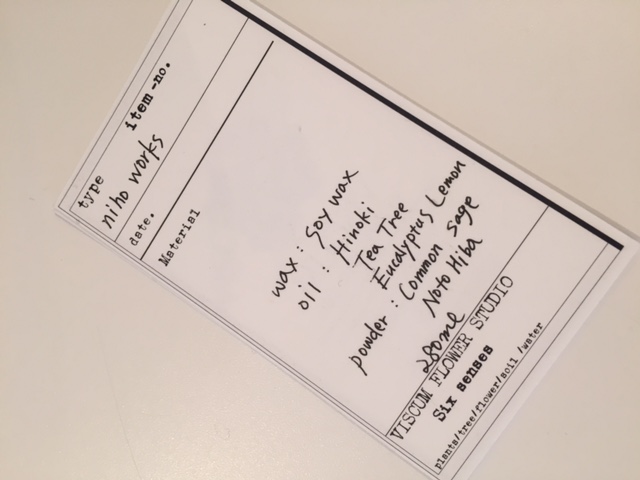 type item-no.
niho works
date.
Material
wax : Soy wax
oil : Hinoki
Tea Tree
Eucalyptus Lemon
powder : Common sage
Noto Hiba
280ml
VISCUM FLOWER STUDIO
Six senses
plants/tree/flower/soil /water